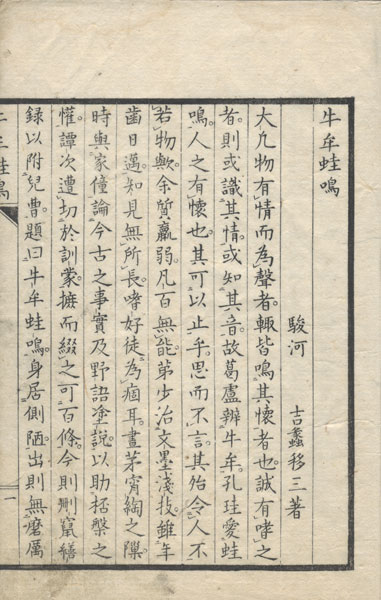 牛牟蛙鳴
駿河　吉蠡移三著
大九物有情而為聲者輙皆鳴其懷者也誠有哮之
者則或識其情或知其音故葛盧辨牛牟孔珪愛蛙
鳴人之有懷也其可以止乎思而不言其殆令人不
若物歟余質羸弱凡百無能第少治文墨淺技雖年
齒日邁知見無所長嗜好徒為痼耳晝茅宵綯之隟
時與家僮論今古之事實及野語塗說以助栝槃之
懽譚次遭切於訓蒙摭而綴之可百條今則刪竄繕
録以附兒曹題曰牛牟蛙鳴身居側陋出則無磨厲
牛牟蛙鳴
一